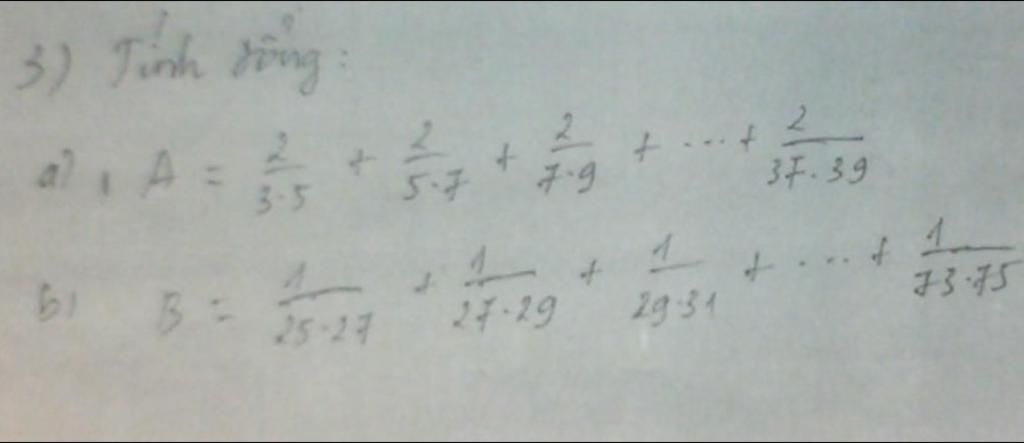 3) Tính tổng:
a), A = 2/3·5 + 2/5·7 + 2/7·9 + ... + 2/37·39
b) B = 1/25·27 + 1/27·29 + 1/29·31 + ... + 1/73·75